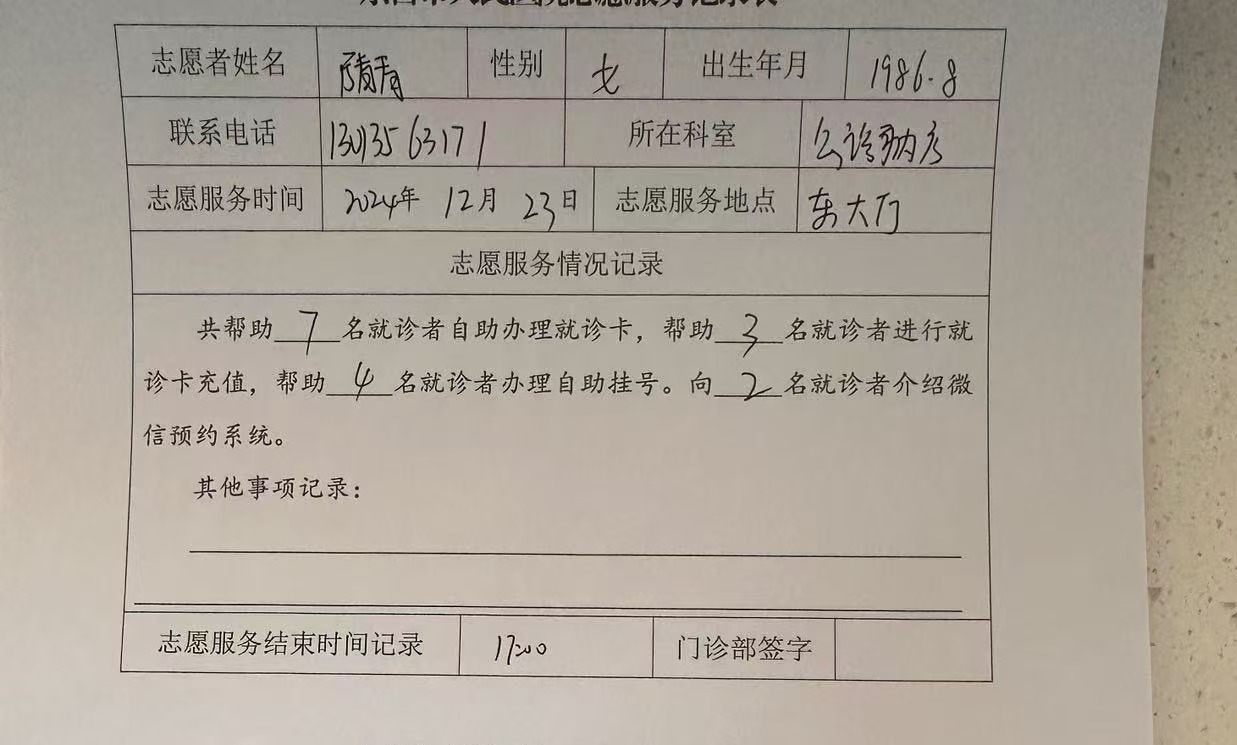 志愿者姓名 隋青 性别 女 出生年月 1986.8
联系电话 13013563171 所在科室
志愿服务时间 2024年 12月 23日 志愿服务地点 东大厅
志愿服务情况记录
共帮助7名就诊者自助办理就诊卡，帮助3名就诊者进行就
诊卡充值，帮助4名就诊者办理自助挂号。向2名就诊者介绍微
信预约系统。
其他事项记录：
志愿服务结束时间记录 17:00 门诊部签字